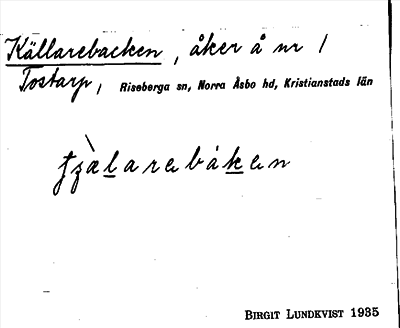 Källarebacken, åker å nr 1
Tostarp, Riseberga sn, Norra Åsbo hd, Kristianstads län
BIRGIT LUNDKVIST 1935